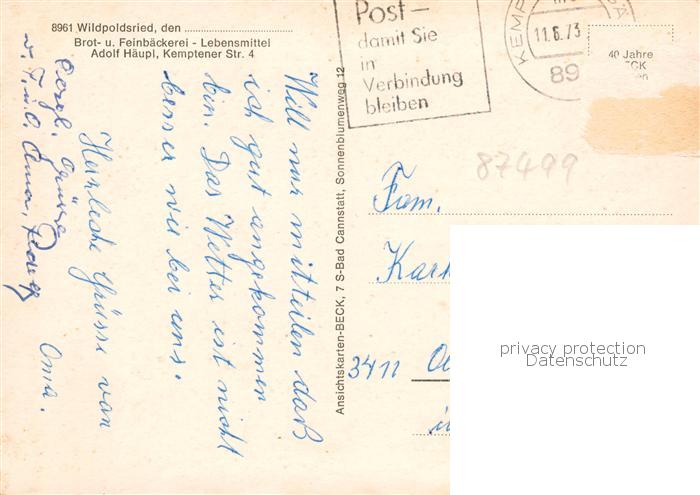 8961 Wildpoldsried, den
Brot- u. Feinbäckerei - Lebensmittel
Adolf Häupl, Kemptener Str. 4
Will nur mitteilen daß
ich gut angekommen
bin. Das Wetter ist nicht
besser wie bei uns.
Herzliche Grüsse von
Oma.
Herzl. Grüsse
v. T. u. O.
Ansichtskarten-BECK, 7 S-Bad Cannstatt, Sonnenblumenweg 12
Post-
damit Sie
in
Verbindung
bleiben
KEMP
11.6.73
89
40 Jahre
CK
en
87499
Fam.
Kar
3411
privacy protection
Datenschutz